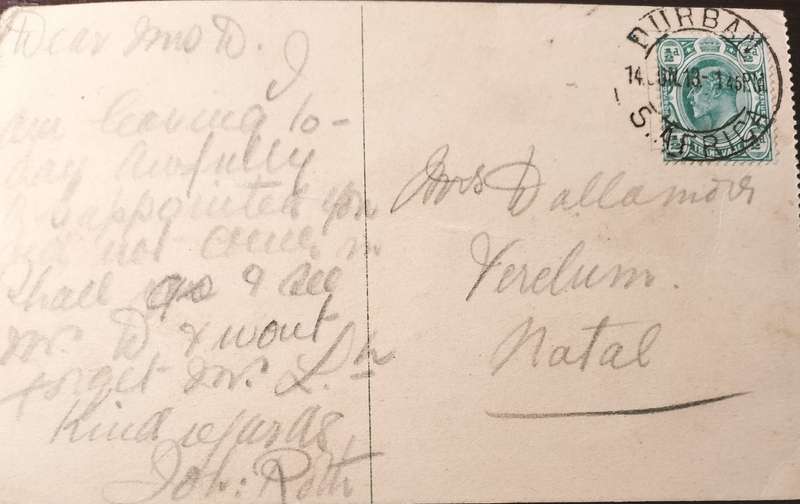 Dear Mrs D. I
am leaving to-
day awfully
disappointed you
did not come in.
Shall go & see
Mr. D & wont
forget Mr. L.
Kind regards
Joh: Roth
DURBAN
14 JUN 13 - 1.45 PM
S. AFRICA
½d
TRANSVAAL
Mrs Dallamore
Verulum.
Natal